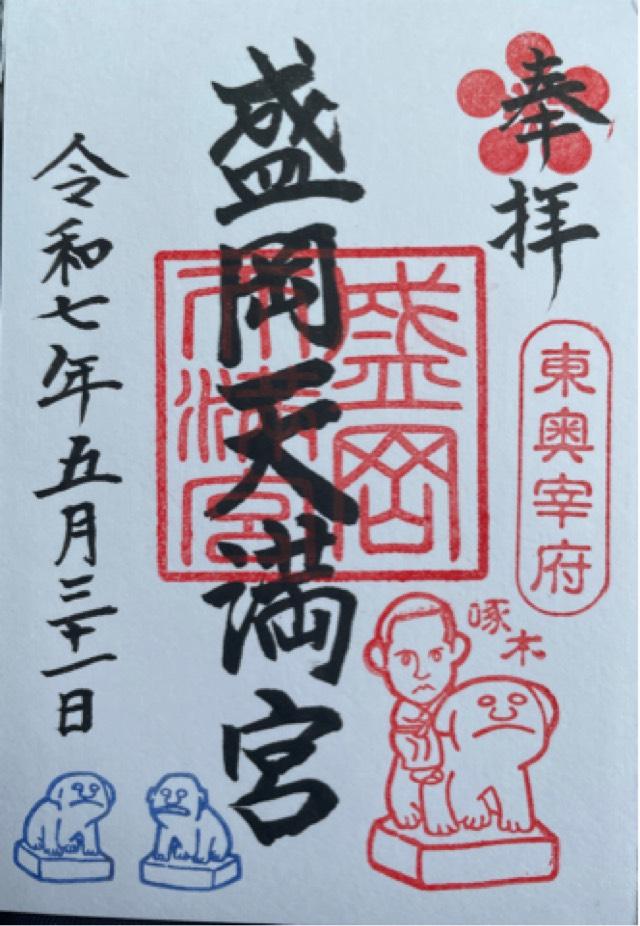 奉拝
東奥宰府
啄木
盛岡天満宮
盛岡
天満宮
令和七年五月三十一日